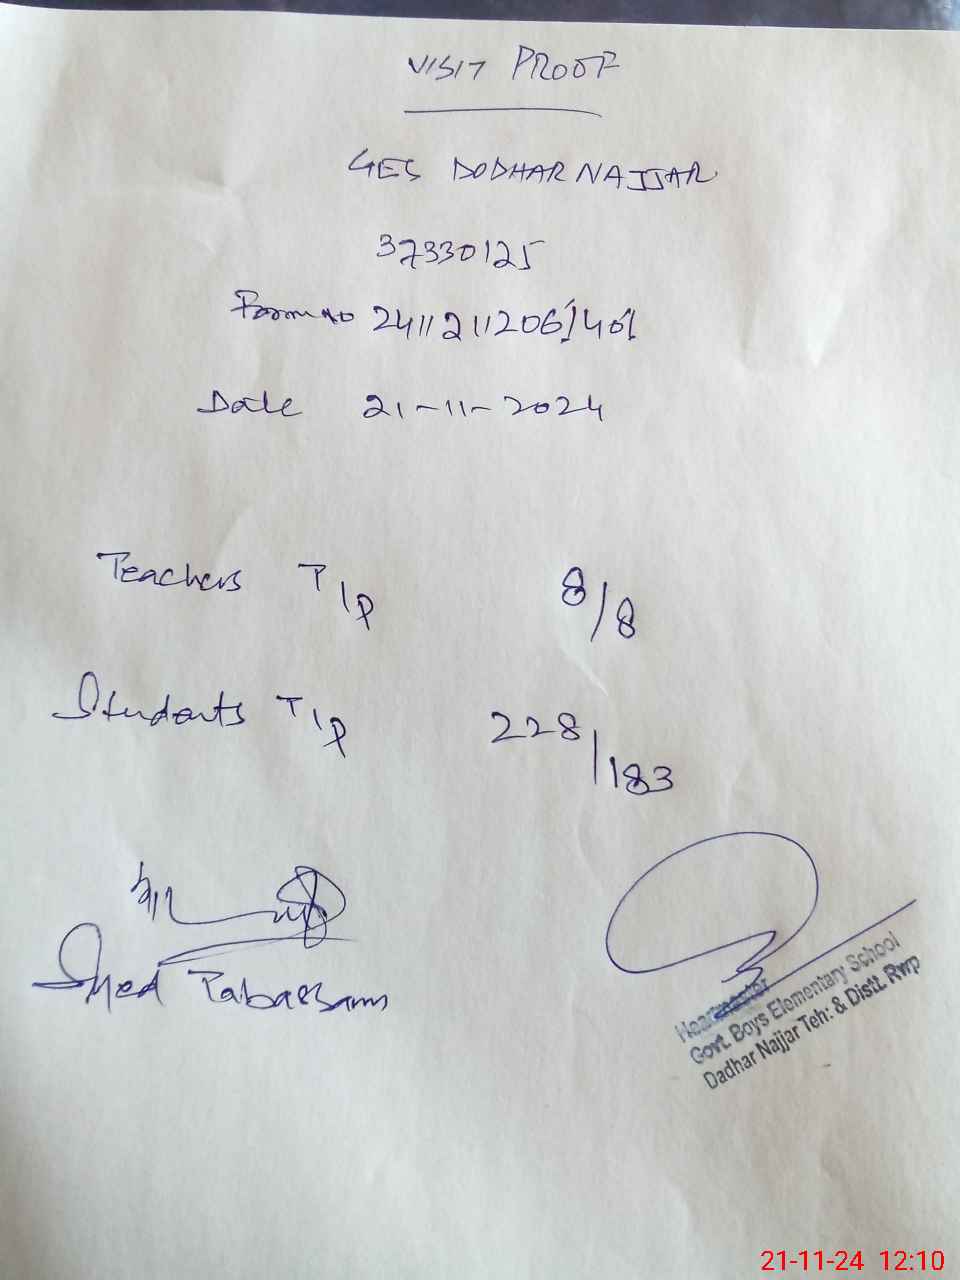 VISIT PROOF
GES DODHAR NAJJAR
37330125
Form no 24112112061401
Date 21-11-2024
Teachers T/P 8/8
Students T/P 228/183
Syed Tabassam
Headmaster
Govt. Boys Elementary School
Dadhar Najjar Teh: & Distt. Rwp
21-11-24 12:10